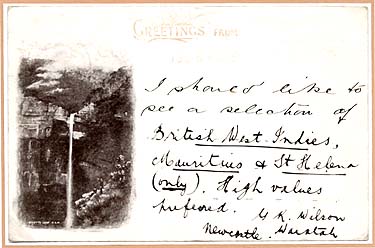 GREETINGS FROM
I should like to
see a selection of
British West Indies,
Mauritius & St Helena
(only). High values
preferred. G. R. Wilson
Newcastle. Waratah